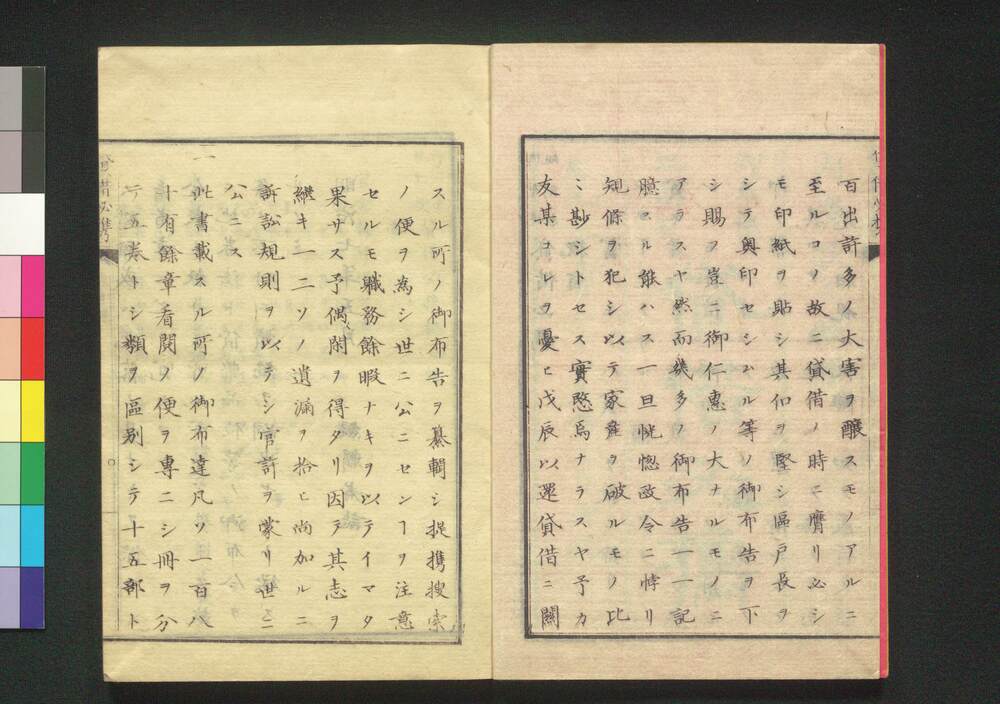 百出許多ノ大害ヲ釀スモノアルニ
至ルコノ故ニ貸借ノ時ニ膺リ必シ
モ印紙ヲ貼シ其和ヲ堅シ區戸長ヲ
シテ奧印セシムル等ノ御布告ヲ下
シ賜フ豈ニ御仁惠ノ大ナルモノニ
アラスヤ然而幾多ノ御布告一一記
臆スル能ハス一旦恍惚政令ニ悖リ
規條ヲ犯シ以テ家産ヲ破ルモノ比
ミ尠シトセス實愍焉ナラスヤ予カ
友某コレヲ憂ヒ戊辰以還貸借ニ關
スル所ノ御布告ヲ纂輯シ提携搜索
ノ便ヲ為シ世ニ公ニセンヿヲ注意
セルモ職務餘暇ナキヲ以テイマタ
果サス予偶閑ヲ得タリ因テ其志ヲ
継キ一二ソノ遺漏ヲ拾ヒ尚加ルニ
訴訟規則ヲ以テシ官許ヲ蒙リ世ニ
公ニス
一此書載スル所ノ御布達凡ソ一百八
十有餘章看閲ノ便ヲ專ニシ冊ヲ分
テ五巻トシ類ヲ區别シテ十五部ト